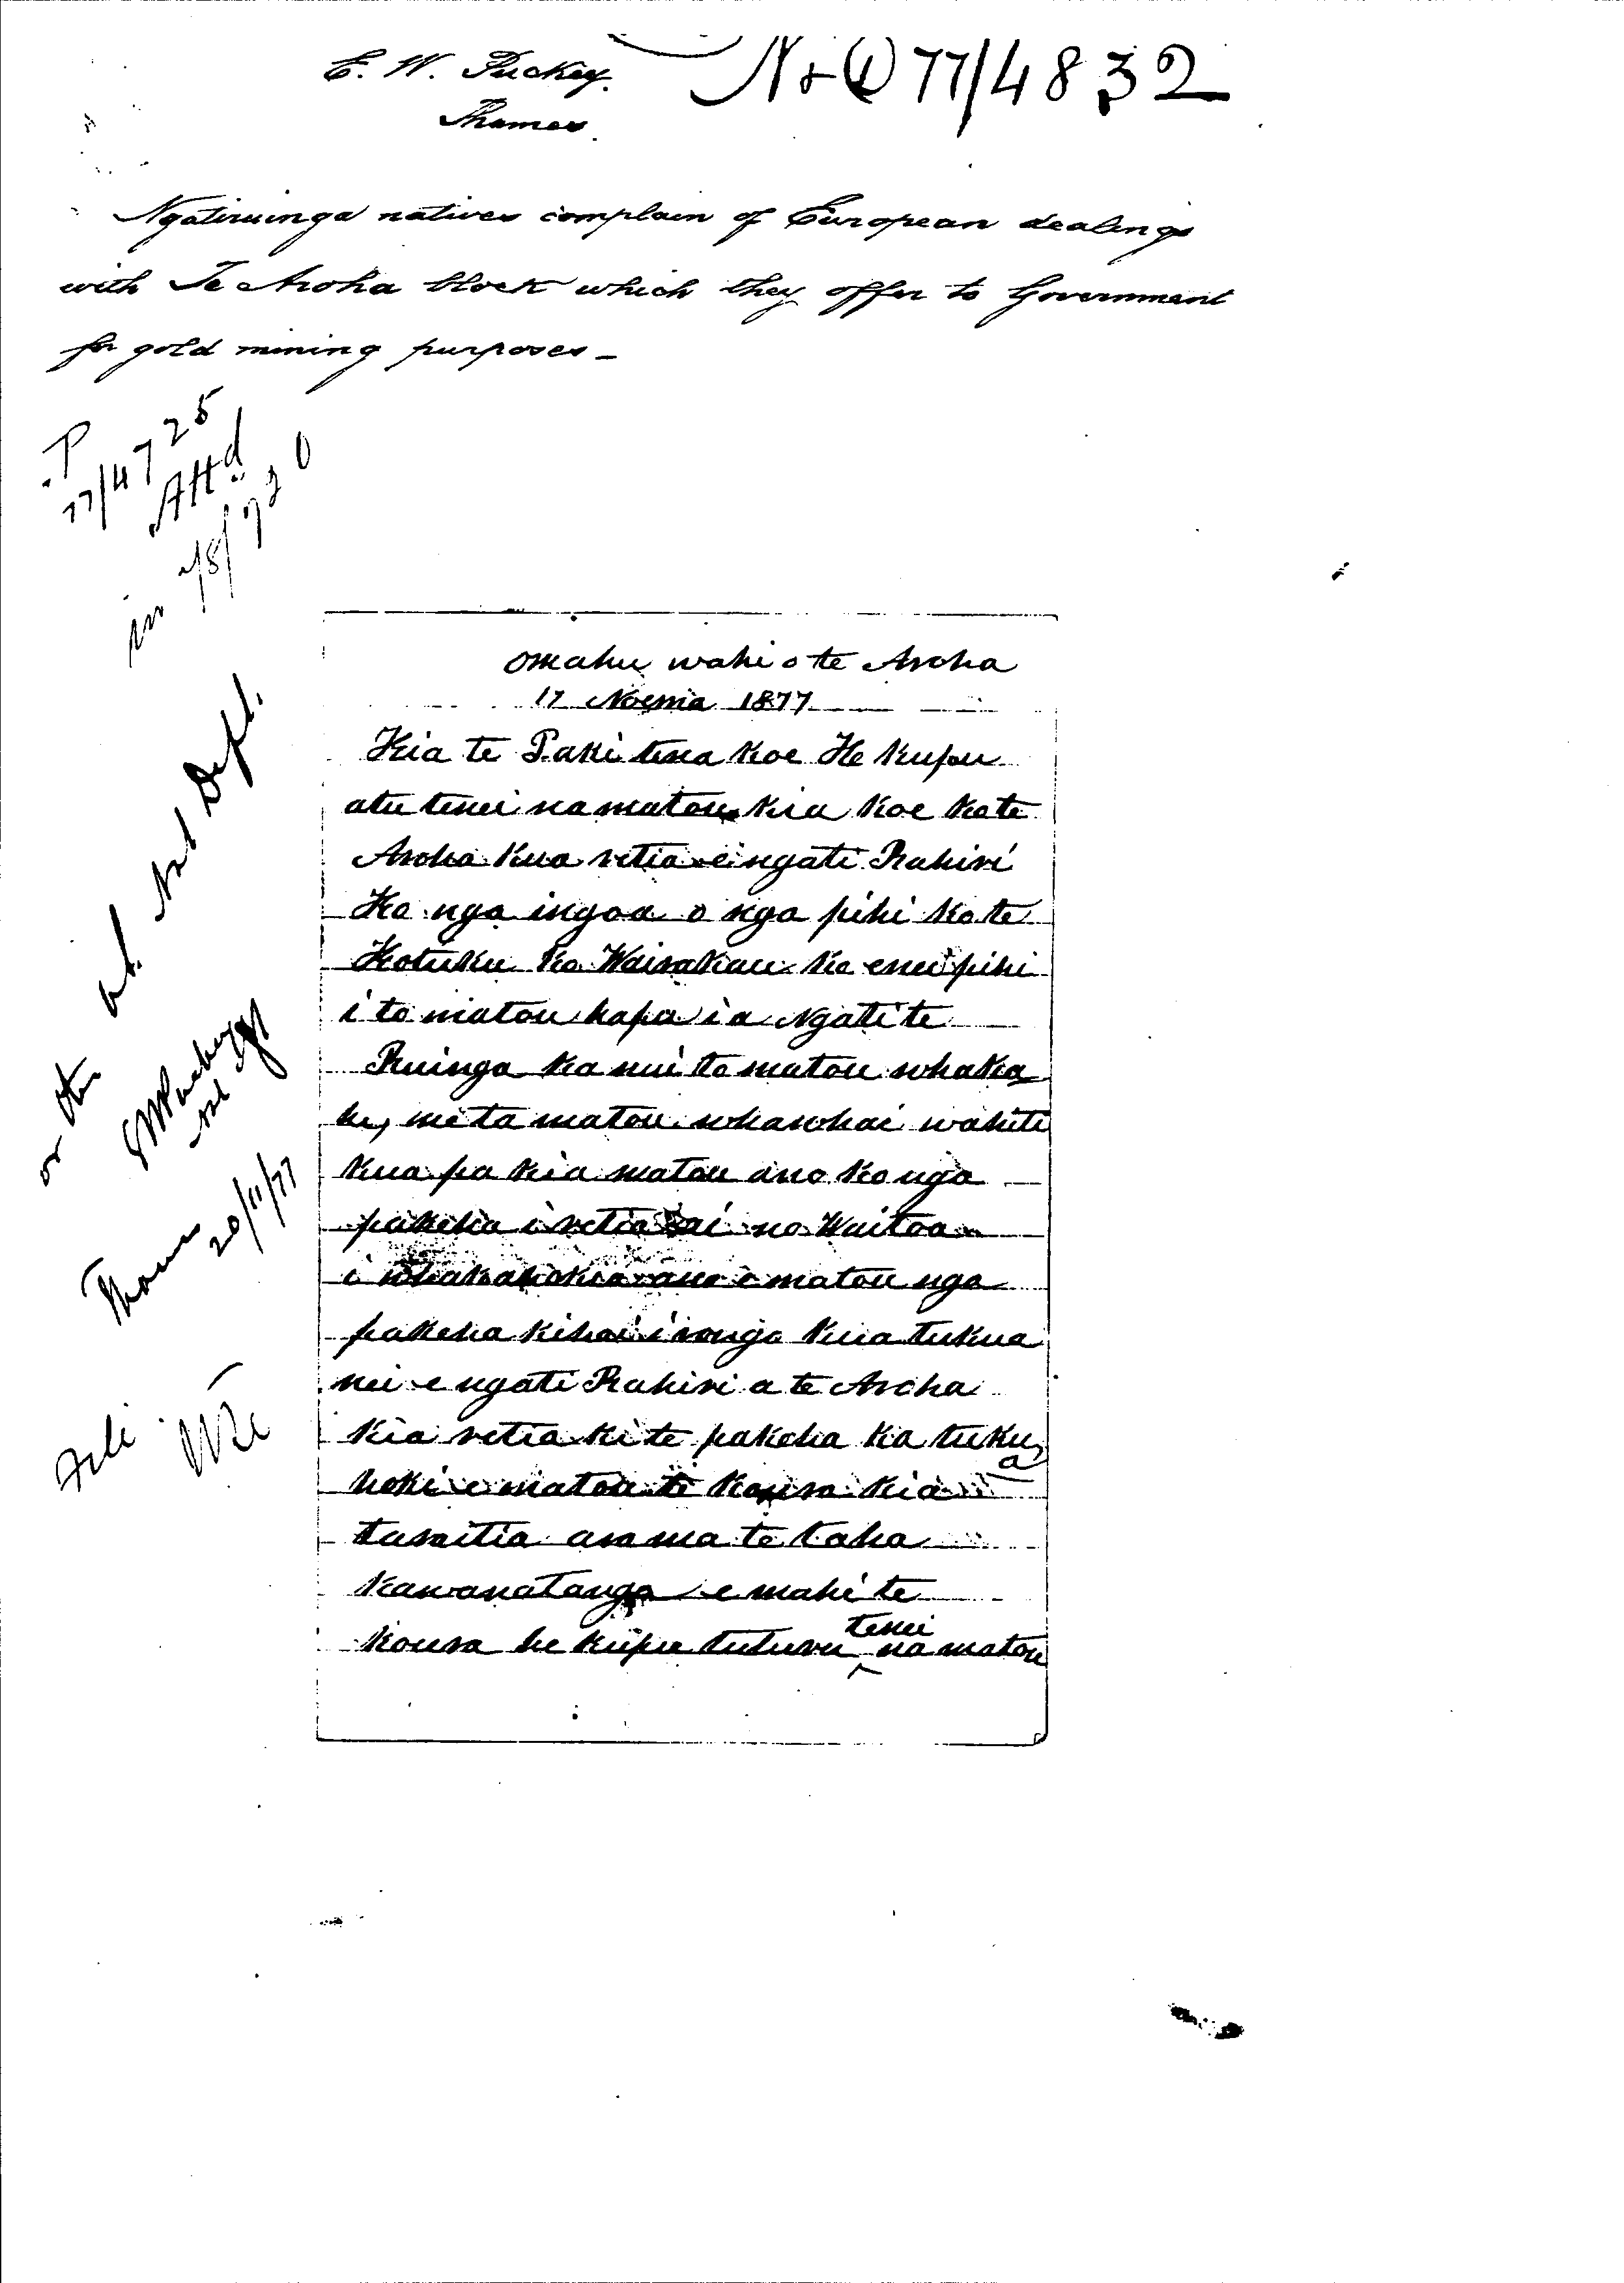 E. W. Puckey.
Thames.
N & D 77/4832
Ngatiruinga natives complain of European dealings
with Te Aroha block which they offer to Government
for gold mining purposes –
P
77/4725
Attd
in 78/920
Dept.
Thames
20/11/77
File
Omahu wahi o te Aroha
17 Noema 1877
Kia te Paki tena koe He kupu
atu tenei na matou kia koe ko te
Aroha kua retia e ngati Rahiri
Ko nga ingoa o nga pihi ko te
Kotuku ko Wairakau ko enei pihi
i to matou hapu i a Ngati te
Ruinga ka nui to matou whaka
he, me ta matou whawhai
kua pa kia matou ano ko nga
pakeha i retia ai no Waitoa
i whakahokia ano e matou nga
pakeha kihai i rongo kua tukua
nei e ngati Rahiri a te Aroha
kia retia ki te pakeha ka tukua
hoki e matou te koura kia
tuwitia ara ma te taha
kawanatanga e mahi te
koura he kupu tuturu tenei na matou